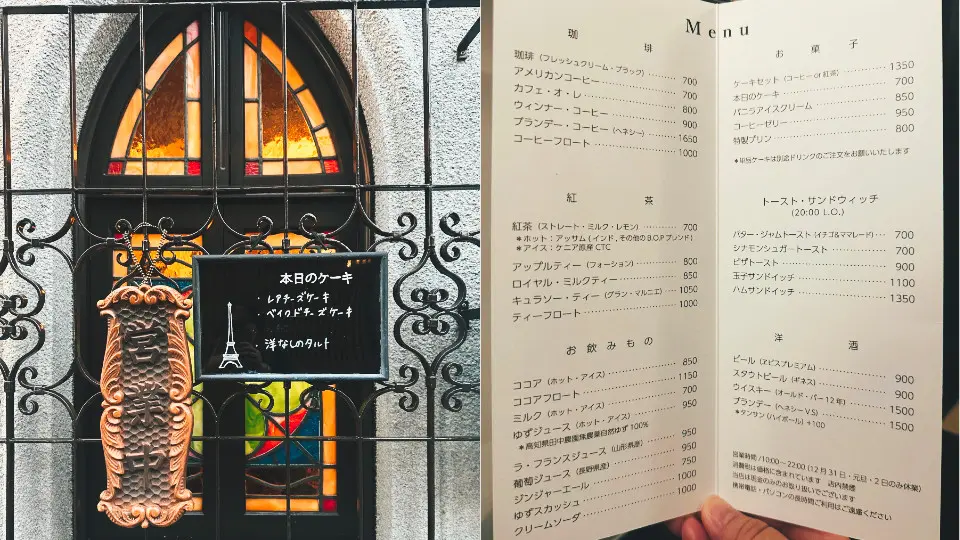 営業中
本日のケーキ
・レアチーズケーキ
・ベイクドチーズケーキ
・洋なしのタルト
Menu
珈琲
珈琲（フレッシュクリーム・ブラック） 700
アメリカンコーヒー 700
カフェ・オ・レ 800
ウィンナー・コーヒー 900
ブランデー・コーヒー（ヘネシー） 1650
コーヒーフロート 1000
紅茶
紅茶（ストレート・ミルク・レモン） 700
＊ホット：アッサム（インド，その他のB.O.Pブレンド）
＊アイス：ケニア原産CTC
アップルティー（フォーション） 800
ロイヤル・ミルクティー 850
キュラソー・ティー（グラン・マルニエ） 1050
ティーフロート 1000
お飲みもの
ココア（ホット・アイス） 850
ココアフロート 1150
ミルク（ホット・アイス） 700
ゆずジュース（ホット・アイス） 950
＊高知県田中農園無農薬自然ゆず100%
ラ・フランスジュース（山形県産） 950
葡萄ジュース（長野県産） 950
ジンジャーエール 750
ゆずスカッシュ 1000
クリームソーダ 1000
お菓子
ケーキセット（コーヒー or 紅茶） 1350
本日のケーキ 700
バニラアイスクリーム 850
コーヒーゼリー 950
特製プリン 800
＊単品ケーキは別途ドリンクのご注文をお願いいたします
トースト・サンドウィッチ
(20:00 L.O.)
バター・ジャムトースト（イチゴ&ママレード） 700
シナモンシュガートースト 700
ピザトースト 900
玉子サンドイッチ 1100
ハムサンドイッチ 1350
洋酒
ビール（ヱビスプレミアム） 900
スタウトビール（ギネス） 900
ウイスキー（オールド・パー12年） 1500
ブランデー（ヘネシーV.S） 1500
＊タンサン（ハイボール）+100
営業時間/10:00～22:00（12月31日・元旦・2日のみ休業）
消費税は価格に含まれています　店内禁煙
当店は現金のみのお取り扱いでございます
携帯電話・パソコンの長時間ご利用はご遠慮ください